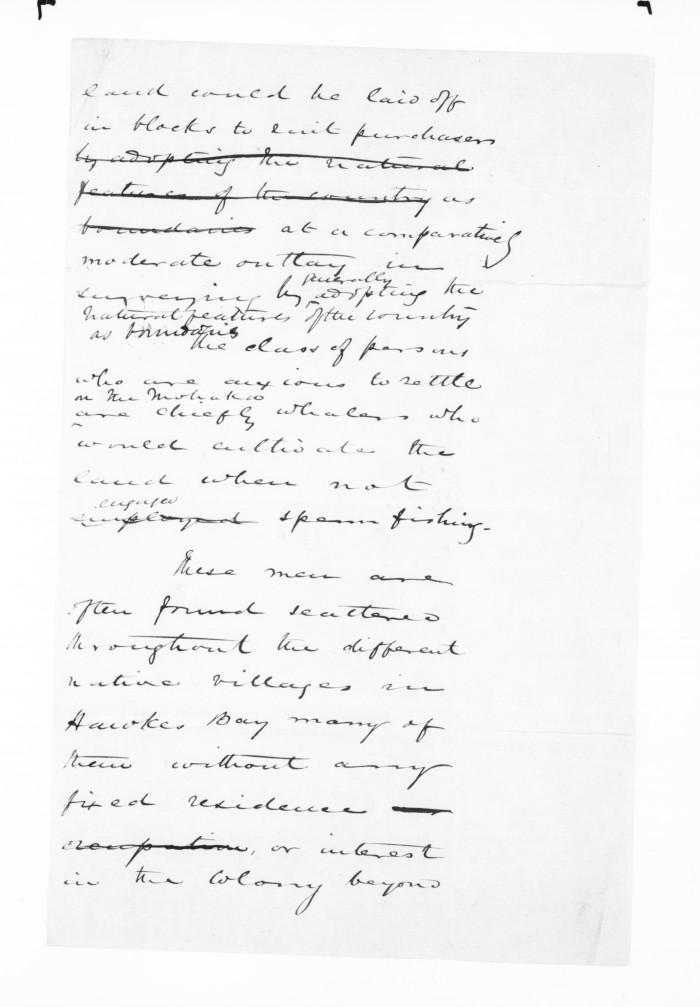 land could be laid off
in blocks to suit purchasers
by adopting the natural
features of the country as
boundaries at a comparatively
moderate outlay in
generally
surveying by adopting the
natural features of the country
as boundaries
the class of persons
who are anxious to settle
on the Mohaka
are chiefly whalers who
would cultivate the
land when not
engaged
employed sperm fishing.
These men are
often found scattered
throughout the different
native villages in
Hawkes Bay many of
them without any
fixed residence
occupation, or interest
in the Colony beyond